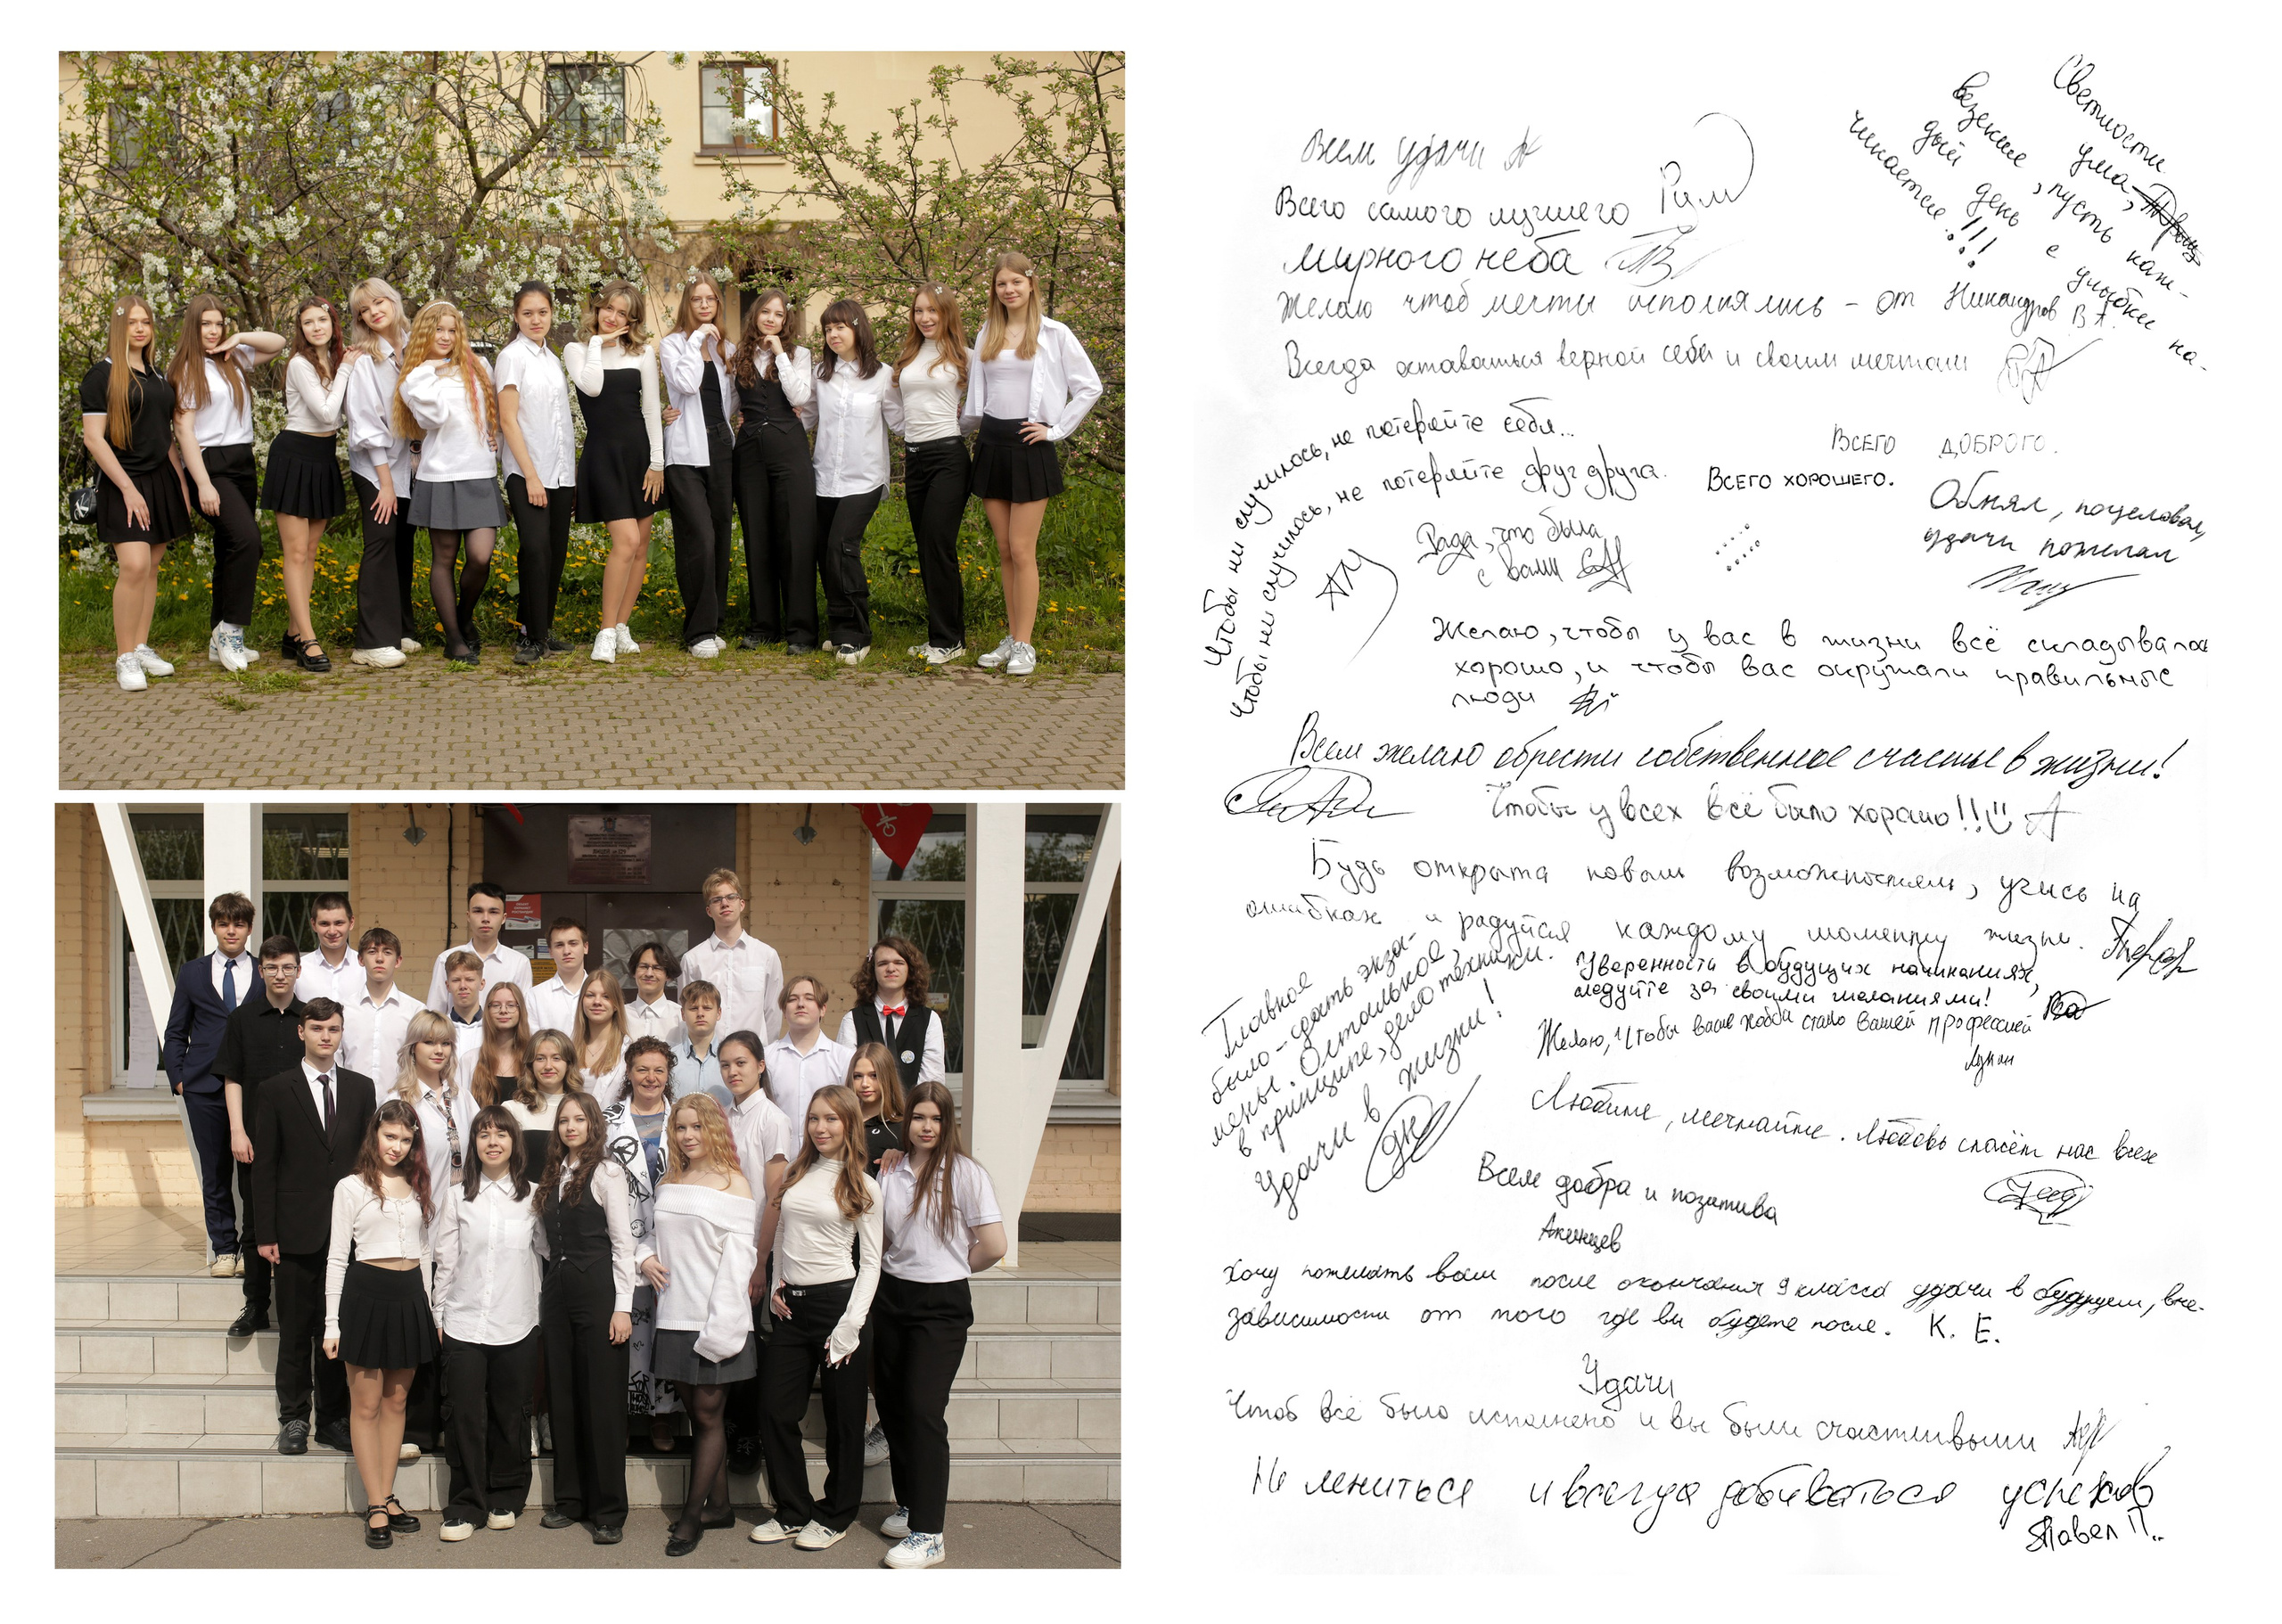 Всем удачи
Всего самого лучшего Рим
мирного неба
Желаю чтоб мечты исполнялись - от Никандров В А.
Всегда оставаться верной себе и своим мечтам
Светлости
ума,
везение, пусть каж-
дый день с улыбки на-
чинается!!!
Чтобы ни случилось, не потеряйте себя...
Чтобы ни случилось, не потеряйте друг друга.
АМ
Рада, что была
с вами
Всего доброго.
Всего хорошего.
Обнял, поцеловал,
удачи пожелал
Желаю, чтобы у вас в жизни всё складывалос
хорошо, и чтобы вас окружали правильные
люди
Всем желаю обрести собственное счастье в жизни!
Чтобы у всех всё было хорошо!! А
Будь открыта новым возможностям, учись на
ошибках и радуйся каждому моменту жизни.
Главное
было - сдать экза-
мены. Остальное,
в принципе, дело техники.
Удачи в жизни!
Уверенности в будущих начинаниях,
следуйте за своими желаниями!
Желаю, чтобы ваше хобби стало вашей профессией
Любите, мечтайте. Любовь спасёт нас всех
Всем добра и позитива
Акинцев
Хочу пожелать вам после окончания 9 класса удачи в будущем, вне-
зависимости от того где вы будете после. К. Е.
Удачи
Чтоб всё было исполнено и вы были счастливыми
Не лениться и всегда добиваться успехов
Павел П..